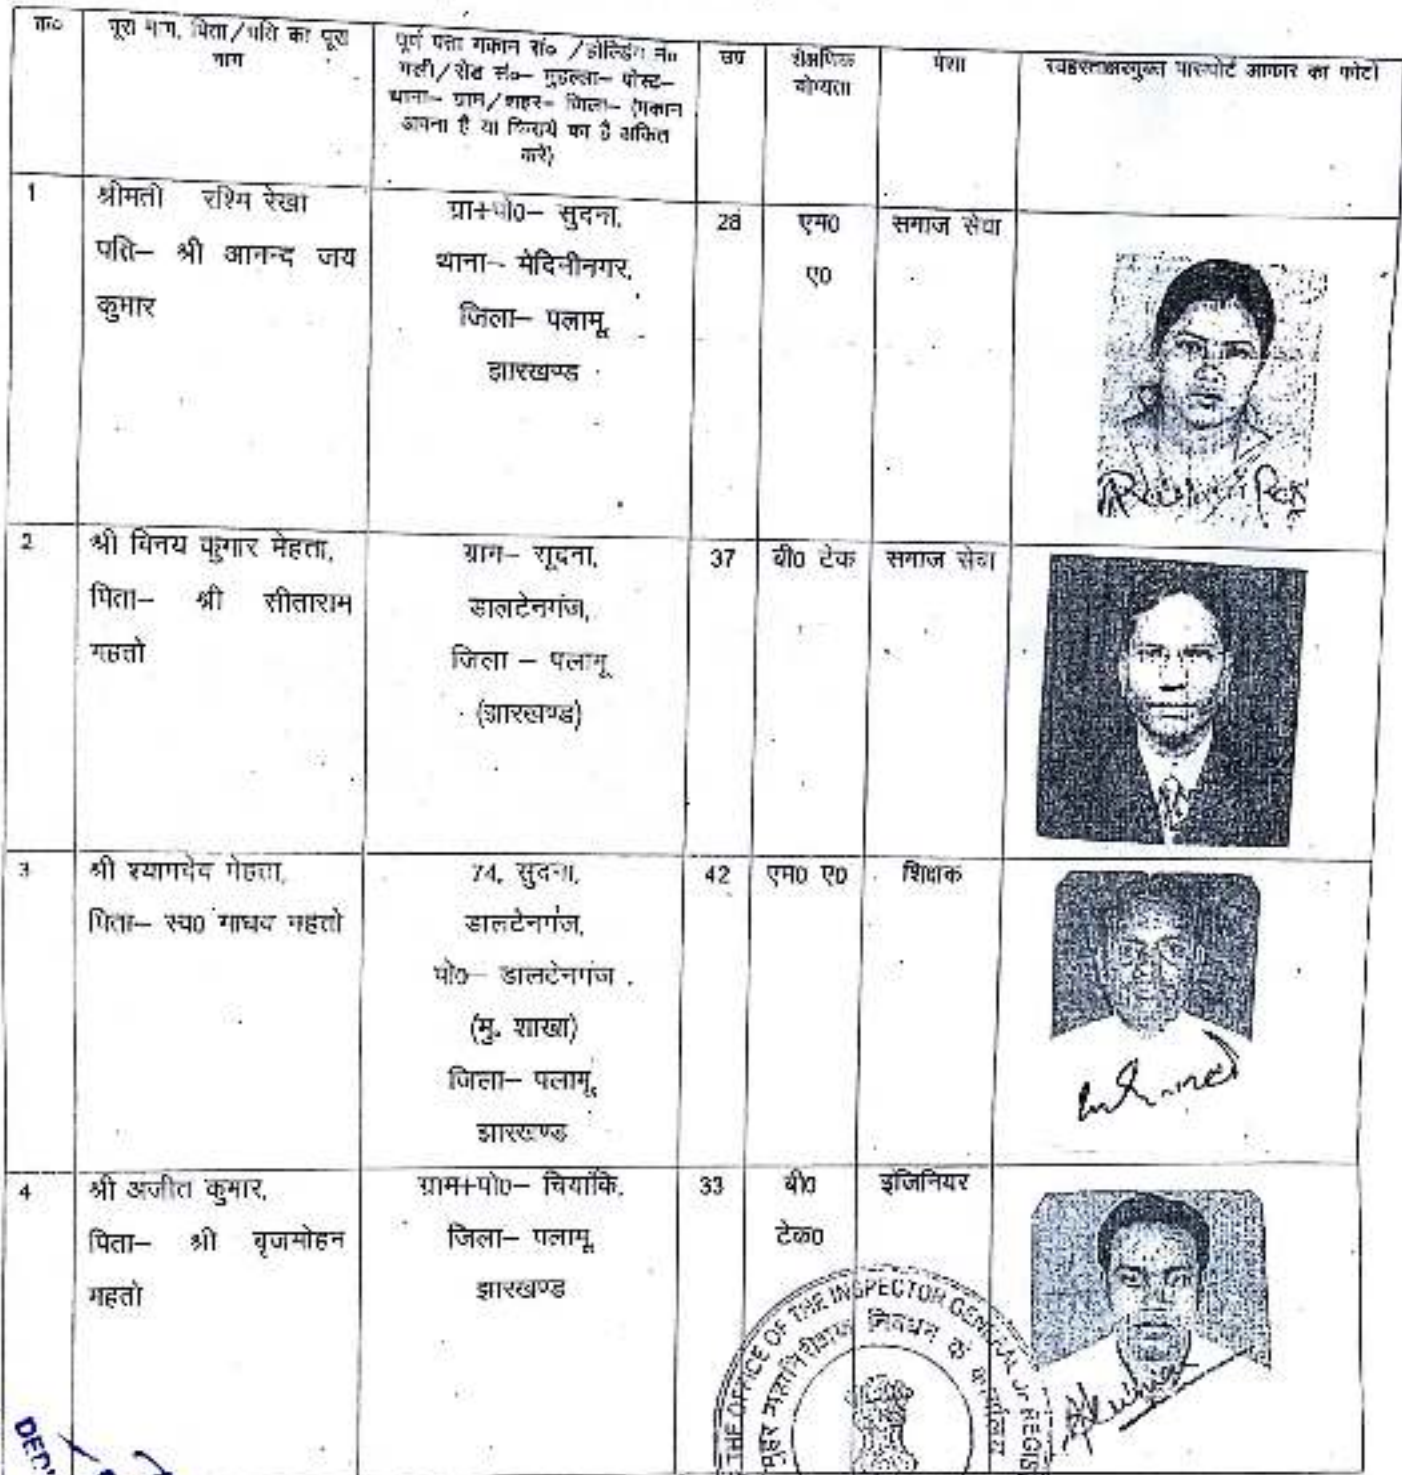 क्र०
पूरा नाम, पिता/पति का पूरा
नाम
पूर्ण पता मकान सं० /होल्डिंग नं०
गली/रोड सं०– मुहल्ला– पोस्ट–
थाना– ग्राम/शहर– जिला– (मकान
अपना है या किराये का है अंकित
करें)
उम्र
शैक्षणिक
योग्यता
पेशा
स्वहस्ताक्षरयुक्त पासपोर्ट आकार का फोटो
1
श्रीमती रश्मि रेखा
पति– श्री आनन्द जय
कुमार
ग्रा+पो०– सुदना,
थाना– मेदिनीनगर,
जिला– पलामू,
झारखण्ड
28
एम०
ए०
समाज सेवा
2
श्री विनय कुमार मेहता,
पिता– श्री सीताराम
महतो
ग्राम– सूदना,
डालटेनगंज,
जिला – पलामू
(झारखण्ड)
37
बी० टेक
समाज सेवा
3
श्री श्यामदेव मेहता,
पिता– स्व० माधव महतो
74, सुदना,
डालटेनगंज,
पो०– डालटेनगंज
(मु. शाखा)
जिला– पलामू,
झारखण्ड
42
एम० ए०
शिक्षक
4
श्री अजीत कुमार,
पिता– श्री बृजमोहन
महतो
ग्राम+पो०– चियांकि,
जिला– पलामू,
झारखण्ड
33
बी०
टेक०
इंजिनियर
THE OFFICE OF THE INSPECTOR GENERAL OF REGIS
मुहर महानिरीक्षक निबंधन के कार्यालय